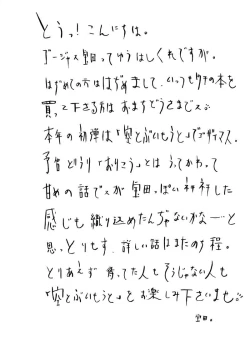 とうっ！こんにちは。
ゴージャス宝田ってゆうはしくれですが。
はじめての方ははじめまして、いっつもウチの本を
買って下さる方はおまちどうさまでスシ
本年の初弾は「空とぶいもうと」でゴザイマス。
予告どうり「おりこう」とはうってかわって
甘めの話でスが宝田っぽい神々した
感じも織り込めたんぢゃないかなーと
思っとりもす。詳しい話はまたの程。
とりあえず 待ってた人もそうじゃない人も
「空とぶいもうと」をお楽しみ下さいませ。
宝田。